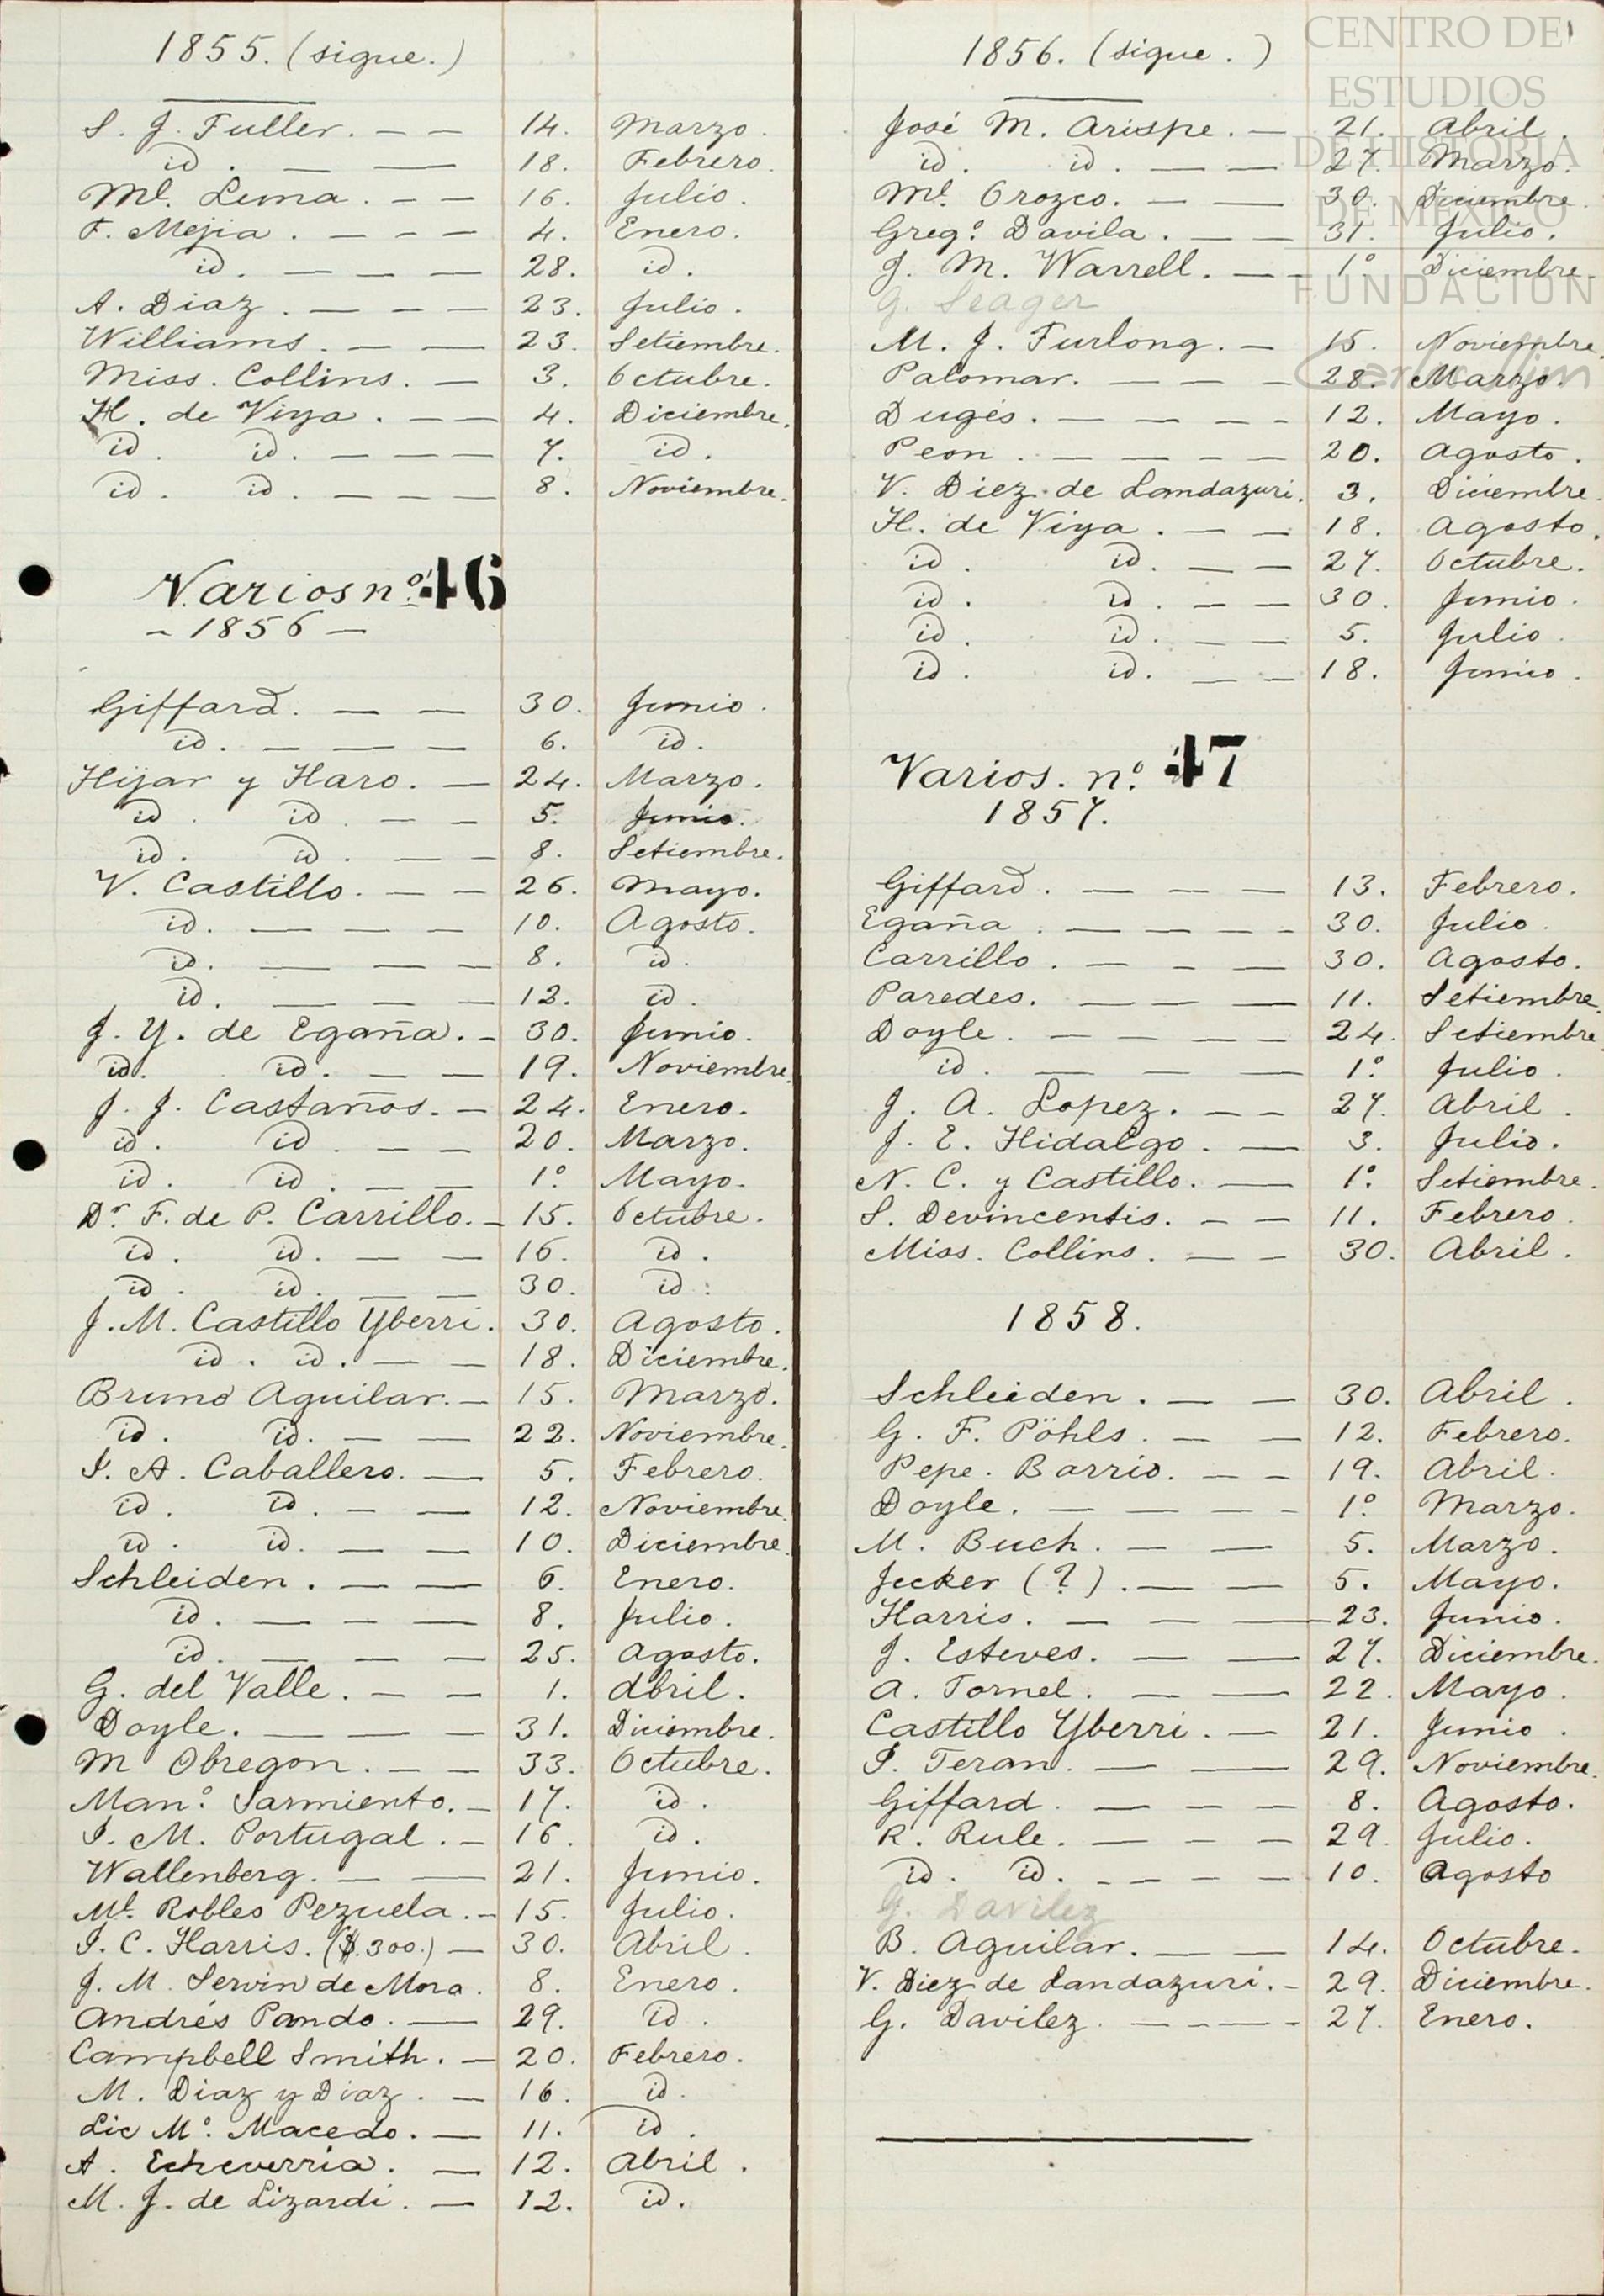 1855. (sigue.)
S. J. Fuller. — — 14. Marzo.
id. — — 18. Febrero.
Ml. Luna. — — 16. Julio.
F. Mejia. — — — 4. Enero.
id. — — — 28. id.
A. Diaz. — — — 23. Julio.
Williams. — — 23. Setiembre.
Miss. Collins. — 3. Octubre.
H. de Viya. — — 4. Diciembre.
id. id. — — — 7. id.
id. id. — — — 8. Noviembre.
Varios nº. 46
– 1856 –
Giffard. — — 30. Junio.
id. — — — 6. id.
Hijar y Haro. — 24. Marzo.
id. id. — — 5. Junio.
id. id. — — 8. Setiembre.
V. Castillo. — — 26. Mayo.
id. — — — 10. Agosto.
id. — — — 8. id.
id. — — — 12. id.
J. Y. de Egaña. — 30. Junio.
id. id. — — 19. Noviembre.
J. J. Castaños. — 24. Enero.
id. id. — — 20. Marzo.
id. id. — — 1º. Mayo.
Dr. F. de P. Carrillo. — 15. Octubre.
id. id. — — 16. id.
id. id. — — 30. id.
J. M. Castillo Yberri. 30. Agosto.
id. id. — — 18. Diciembre.
Bruno Aguilar. — 15. Marzo.
id. id. — — 22. Noviembre.
I. A. Caballero. — 5. Febrero.
id. id. — — 12. Noviembre.
id. id. — — 10. Diciembre.
Schleiden. — — 6. Enero.
id. — — — 8. Julio.
id. — — — 25. Agosto.
G. del Valle. — — 1. Abril.
Doyle. — — — 31. Diciembre.
M Obregon. — — 33. Octubre.
Manº. Sarmiento. — 17. id.
I. M. Portugal. — 16. id.
Wallenberg. — — 21. Junio.
Ml. Robles Pezuela. — 15. Julio.
I. C. Harris. ($.300.) — 30. Abril.
J. M. Servin de Mora. 8. Enero.
Andrés Pando. — 29. id.
Campbell Smith. — 20. Febrero.
M. Diaz y Diaz. — 16. id.
Lic Mº. Macedo. — 11. id.
A. Echeverria. — 12. Abril.
M. J. de Lizardi. — 12. id.
1856. (sigue.)
José M. Arispe. — 21. Abril.
id. id. — — 27. Marzo.
Ml. Orozco. — — 30. Diciembre.
Gregº. Davila. — — 31. Julio.
J. M. Warrell. — — 1º. Diciembre.
G. Seager
M. J. Furlong. — 15. Noviembre.
Palomar. — — — 28. Marzo.
Dugés. — — — — 12. Mayo.
Peon. — — — — 20. Agosto.
V. Diez de Landazuri. 3. Diciembre.
H. de Viya. — — 18. Agosto.
id. id. — — 27. Octubre.
id. id. — — 30. Junio.
id. id. — — 5. Julio.
id. id. — — 18. Junio.
Varios. nº. 47
1857.
Giffard. — — — 13. Febrero.
Egaña. — — — — 30. Julio.
Carrillo. — — — 30. Agosto.
Paredes. — — — 11. Setiembre.
Doyle. — — — — 24. Setiembre
id. — — — 1º. Julio.
J. A. Lopez. — — 27. Abril.
J. E. Hidalgo. — 3. Julio.
N. C. y Castillo. — 1º. Setiembre.
S. Devincentis. — — 11. Febrero.
Miss. Collins. — — 30. Abril.
1858.
Schleiden. — — 30. Abril.
G. F. Pöhls. — — 12. Febrero.
Pepe. Barrio. — — 19. Abril.
Doyle. — — — — 1º. Marzo.
M. Buch. — — 5. Marzo.
Jecker (?). — — 5. Mayo.
Harris. — — — 23. Junio.
J. Esteves. — — 27. Diciembre.
A. Tornel. — — 22. Mayo.
Castillo Yberri. — 21. Junio.
I. Teran. — — 29. Noviembre.
Giffard. — — — 8. Agosto.
R. Rule. — — — 29. Julio.
id. id. — — — — 10. Agosto
G. Davilez
B. Aguilar. — — 14. Octubre.
V. Diez de Landazuri. — 29. Diciembre.
G. Davilez. — — — — 27. Enero.
CENTRO DE
ESTUDIOS
DE HISTORIA
DE MÉXICO
FUNDACIÓN
Carlos Slim